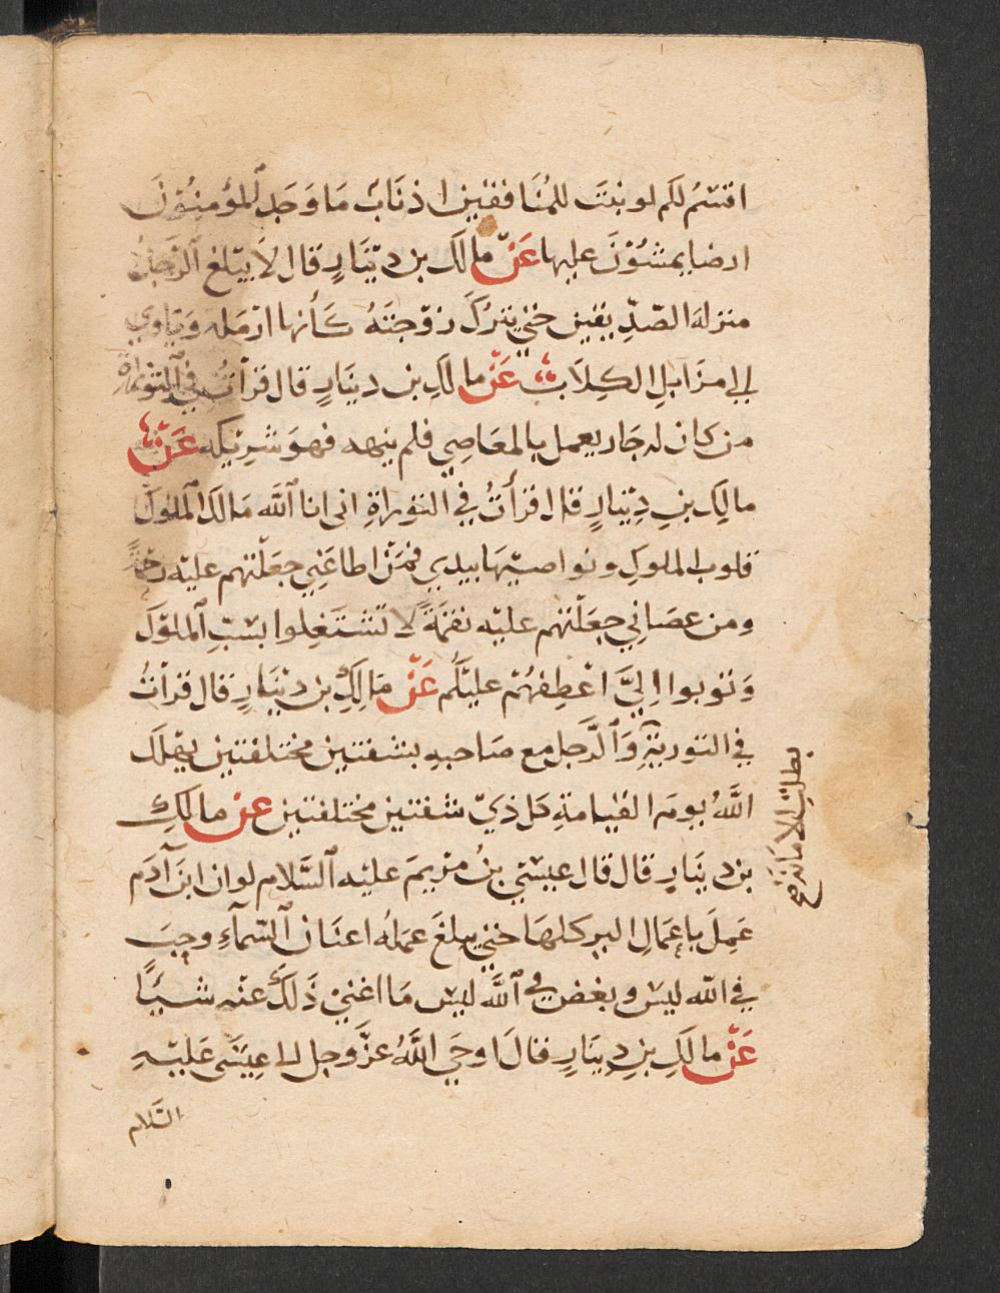 اقسم لكم لو نبتَ للمُنَافقين اذنَابٌ مَا وَجَد المؤمِنُوْنَ
ارضا يمشُوْنَ عليها عَنْ مالك بن ديْنَارٍ قال لاَ يَبْلغ الرَّجلُ
منزلة الصّدِّيقين حتي يترُكَ زوْجتَهُ كَأنها ارْمَلة وَيَاوي
الي مزَابلِ الكِلاَب عَنْ مالكِ بن دينَارٍ قال قرأتُ في التوْراة
من كان له جَار يعمل بالمعَاصِي فلم ينهه فهوَ شرِيْكه عَنْ
مالِك بنِ دِيْنارٍ قال قرأتُ في التوراةِ اني انا اللّٰه مَالك الملوك
قلوب الملوكِ ونواصيْهَا بيدي فمَنْ اطاعَنِي جعَلْتهم عليْه رحْمَةً
ومن عصَانِي جعَلْتهم عليْه نقمَةً لا تشتَغِلوا بسَبِّ الملوْكِ
وَتوبوا اِليَّ اعْطِفهُمْ عليْكُم عَنْ مَالِكِ بن ديْنَارٍ قال قرأتُ
في التوريةِ وَالرَّجل مع صَاحبهِ بشفتين مختلفتين يهْلك
اللّٰهُ يومَ القيامةِ كل ذيْ شفتين مختلفتين عن مالكِ
بن دينَارٍ قال قال عيسَي بنُ مرْيمَ عليْه السَّلام لو ان ابنَ آدَم
عَمِلَ باعْمَالِ البر كلهَا حتي يبلغَ عملُه اعنَان السّمآءِ وحبّ
في اللّٰه ليسَ وبغض في اللّٰه ليسَ مَا اغنيْ ذَلكَ عنْه شيْـًٔا
عَنْ مالكِ بنِ دِينَارٍ قالَ اوحَي اللّٰهُ عزَّ وجل الي عِيسَي عَليْهِ
السَّلام